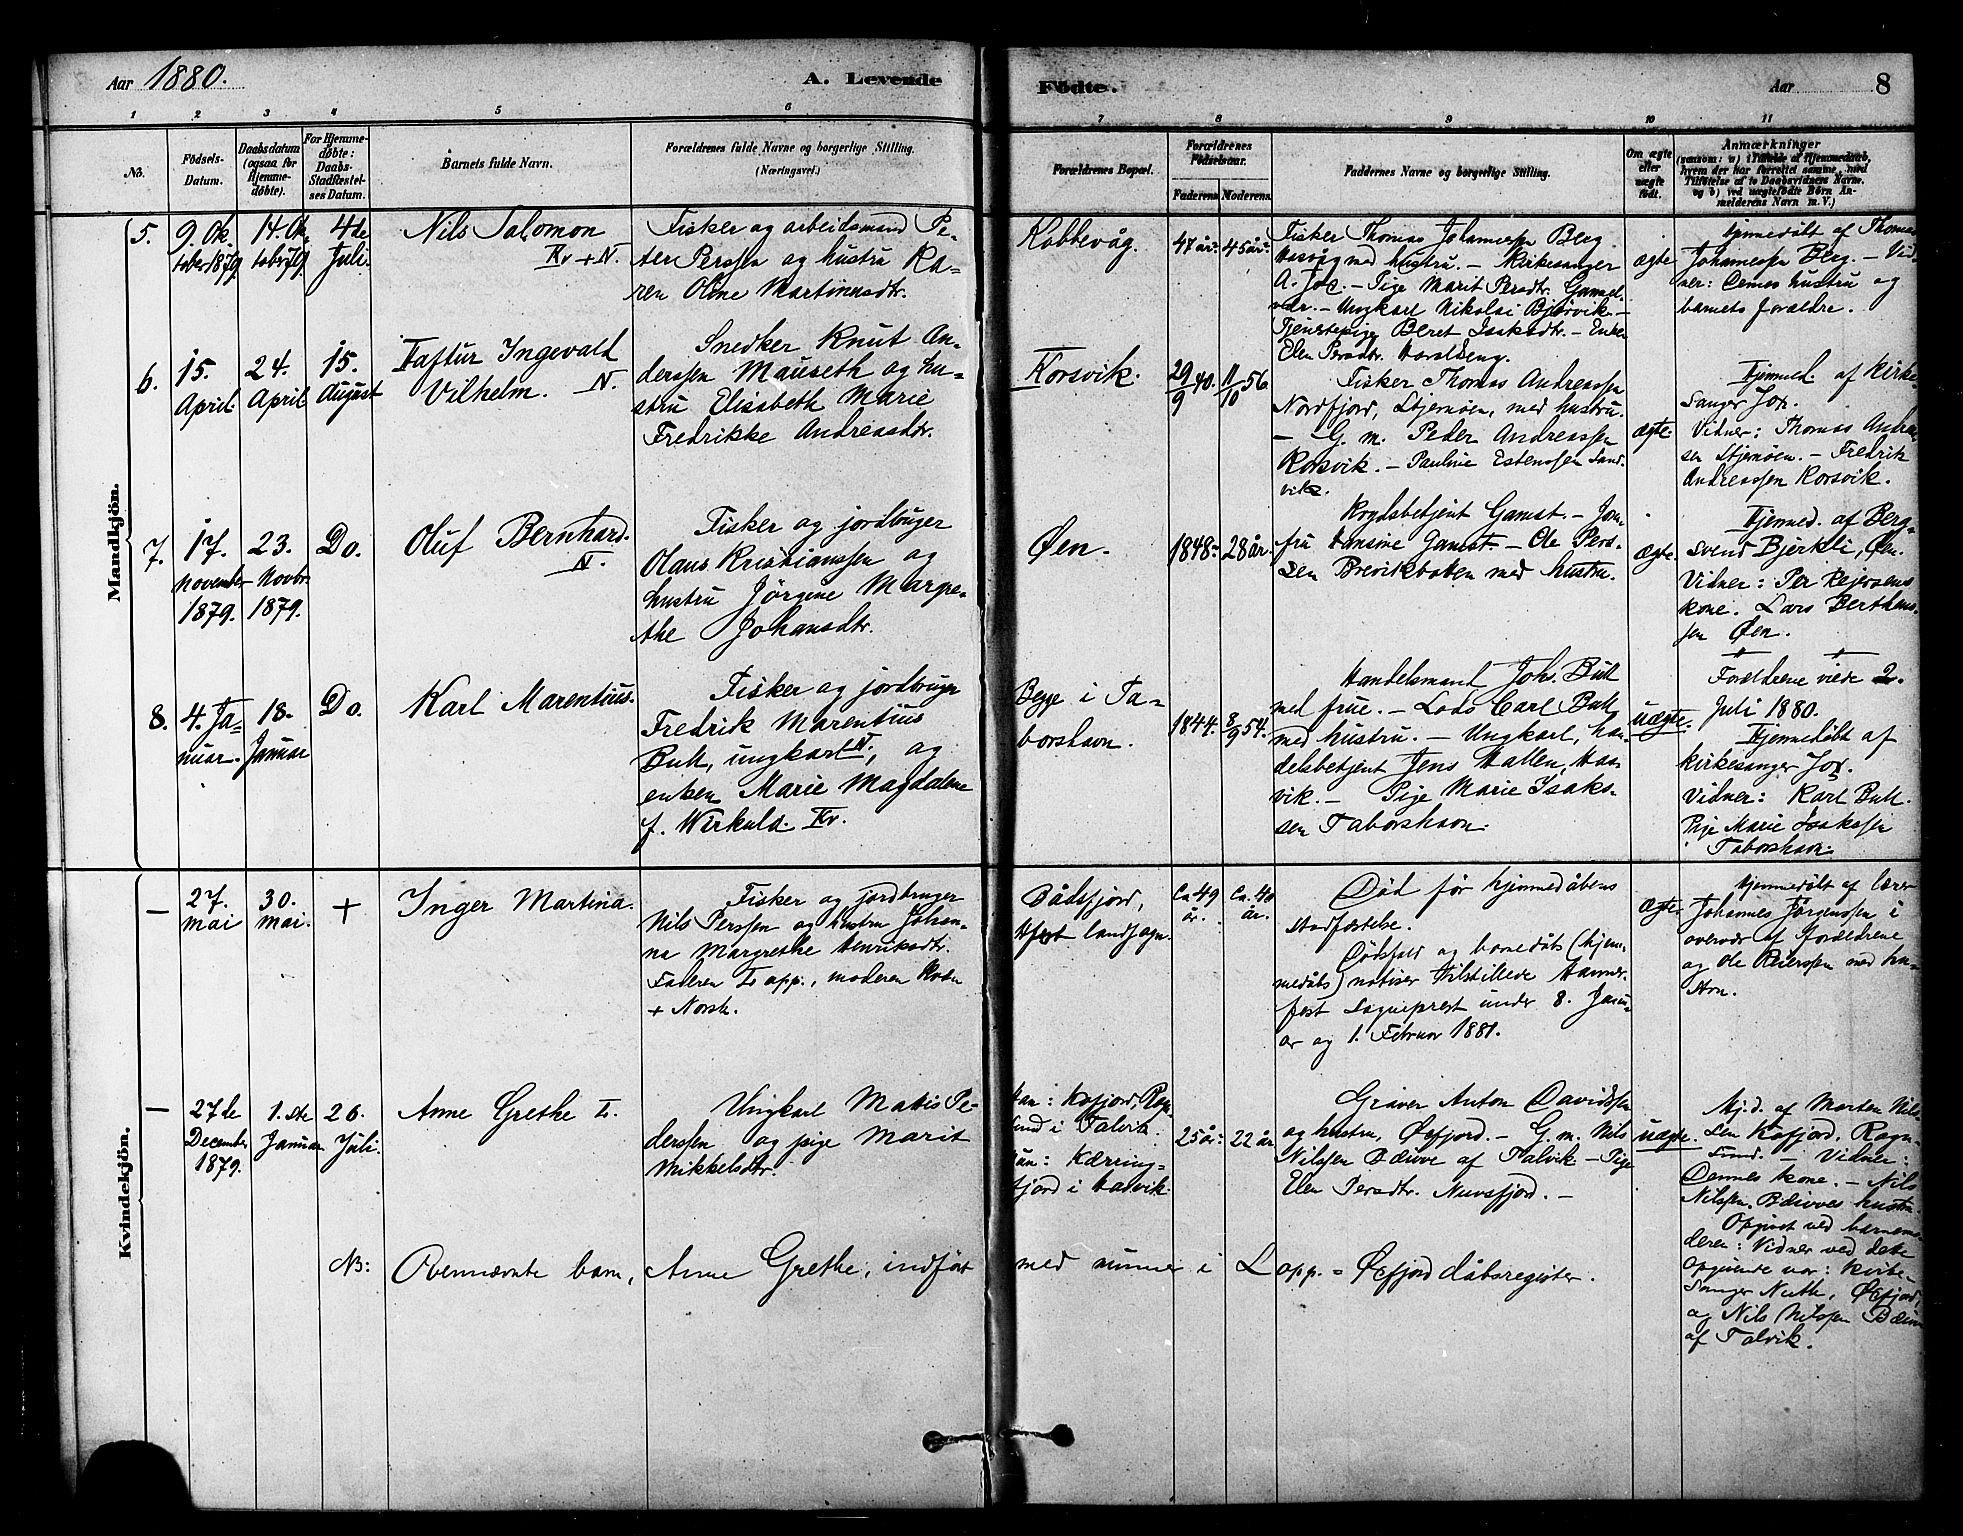 Aar 1880.
A. Levende
Fødte.
Aar
8
1
2
3
4
5
6
7
8
9
10
11
No.
Fødsels-
Datum.
Daabsdatum
(ogsaa for
Hjemme-
døbte).
For Hjemme-
døbte:
Daabs-
Stadfæstel-
ses Datum.
Barnets fulde Navn.
Forældrenes fulde Navne og borgerlige Stilling.
(Næringsvei.)
Forældrenes Bopæl.
Forældrenes
Fødselsaar.
Faderens
Moderens
Faddernes Navne og borgerlige Stilling.
Om ægte
eller
uægte
født.
Anmærkninger
(saasom: a) i Tilfælde af Hjemmedaab,
hvem der har forrettet samme, med
Tilføielse af to Daabsvidners Navne,
og b) ved uægtefødte Børn An-
melderens Navn m. V.)
Mandkjön.
5.
9. Ok-
tober 1879
14. Ok-
tober 79
4de
Juli.
Nils Salomon
Kv + N.
Fisker og arbeidsmand Pe-
ter Perssen og hustru Ka-
ren Oline Martinusdtr.
Kobbevåg.
47 år.
45 år.
Fisker Thomas Johannessen Berg
med hustru. – Kirkesanger
A. Jox. – Pige Marit Persdtr. Gammel-
vær. – Ungkarl Nikolai Bjørvik –
Tjenstepige Beret Isaksdtr. – Enke
Elen Persdtr.
ægte
Hjemmedøbt af Thomas
Johannessen Berg. – Vid-
ner: Dennes hustru og
barnets forældre.
6.
15.
April.
24.
April
15.
August
Taftur Ingevald
Vilhelm. N.
Snedker Knut An-
derssen Mauseth og hu-
stru Elisabeth Marie
Fredrikke Andreasdtr.
Korsvik.
29/9 40.
11/10 56
Fisker Thomas Andreassen
Nordfjord, Stjernøen, med hustru.
– G. m. Peder Andreassen
Korsvik. – Pauline Estensen Sand-
vik.
ægte.
Hjemmed. af Kirke
sanger Jox.
Vidner: Thomas Andreas-
sen Stjernøen. – Fredrik
Andreassen Korsvik.
7.
17.
November
1879.
23.
Novbr.
1879.
Do.
Oluf Bernhard.
N.
Fisker og jordbruger
Olaus Kristianssen og
hustru Jörgine Margre-
the Johansdtr.
Øen.
1848.
28 år.
Krydsbetjent Gamst. – Jom-
fru Hansine Gamst. – Ole Pers-
sen Brevikbotten med hustru.
ægte.
Hjemmed. af Berg-
svend Bjerkli, Øen.
Vidner: Per Reiersens
kone. Lars Berthens-
sen Øen.
8.
4. Ja-
nuar.
18.
Januar
Do.
Karl Marentius.
Fisker og jordbruger
Fredrik Marentius
Bull, ungkarl N., og
enken Marie Magdalene
f. Wirkula. Kv.
Begge i Ta-
borshavn.
1844.
8/9 54.
Handelsmand Johs. Bull
med frue. – Lods Carl Bull
med hustru. – Ungkarl, han-
delsbetjent Jens Hallen, Haa-
vik. – Pige Marie Isaks-
sen Taborshavn.
uægte.
Forældrene viede 2.
Juli 1880.
Hjemmedøbt af
kirkesanger Jox.
Vidner: Karl Bull.
Pige Marie Isakssen
Taborshavn.
Kvindekjön.
–
27.
mai
30.
mai.
+
Inger Martina.
Fisker og jordbruger
Nils Perssen og hustru Johan-
na Margrethe Henriksdtr.
Faderen Lapp., moderen Kvæn
+ Norsk.
Bådsfjord,
Hfest landsogn.
Ca. 49
år.
Ca. 40
år.
Død før hjemmedåbens
stadfæstelse.
Dødsfald og barnedåbs (hjem-
medåbs) notiser tilstillede Hammer-
fest Sogneprest under 8. Janu-
ar og 1. Februar 1881.
ægte.
Hjemmedøbt af lærer
Johannes Jörgenssen i
overvær af forældrene
og Ole Reierssen med hu-
stru.
–
27de
December
1879.
1.ste
Januar
26.
Juli.
Anne Grethe L.
Ungkarl Mathis Pe-
derssen og pige Marit
Mikkelsdtr.
Han: Kofjord, Rog-
sund i Talvik.
Hun: Kærring-
fjord i Talvik.
25 år.
22 år
Graver Anton Davidssen
og hustru, Øxfjord. – G. m. Nils
Nilssen Bæivve af Talvik – Pige
Elen Persdtr. Nuvsfjord. –
uægte.
Hj.d. af Morten Nils-
sen Kofjord, Rogn-
sund. – Vidner:
Dennes kone. – Nils
Nilssen Bæivves hustru.
Opgivet ved barnemo-
deren: Vidner ved dette
opgivende var: Kirke-
sanger Nuth, Øxfjord,
og Nils Nilssen Bæivve
af Talvik.
NB: Ovennævnte barn, Anne Grethe, indført med numer i Lopp. = Øxfjord dåbsregister.